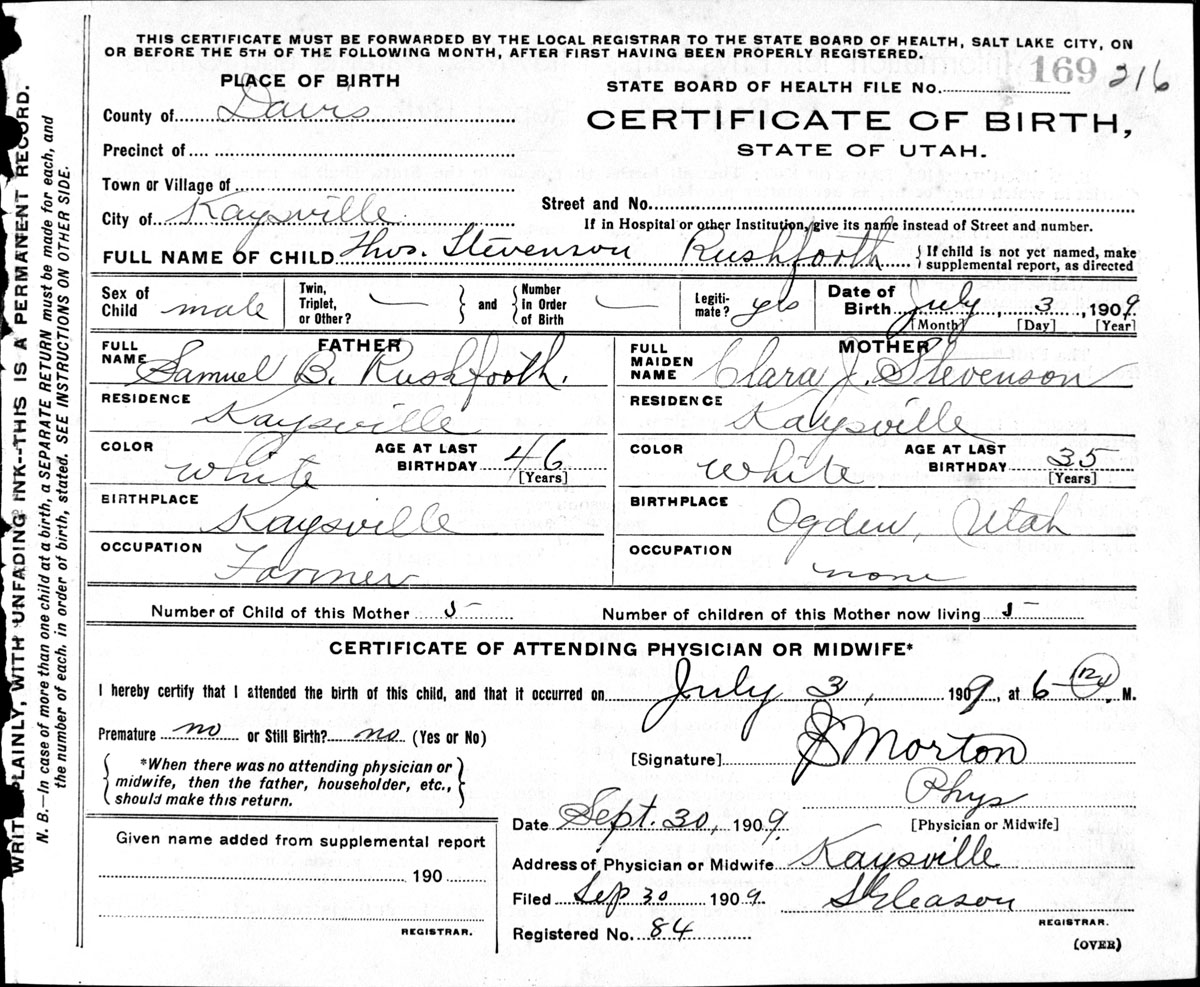 THIS CERTIFICATE MUST BE FORWARDED BY THE LOCAL REGISTRAR TO THE STATE BOARD OF HEALTH, SALT LAKE CITY, ON
OR BEFORE THE 5TH OF THE FOLLOWING MONTH, AFTER FIRST HAVING BEEN PROPERLY REGISTERED.
PLACE OF BIRTH
STATE BOARD OF HEALTH FILE No. 169 216
County of Davis
CERTIFICATE OF BIRTH,
STATE OF UTAH.
Precinct of
Town or Village of
City of Kaysville
Street and No.
If in Hospital or other Institution, give its name instead of Street and number.
FULL NAME OF CHILD Thos. Stevenson Rushforth { If child is not yet named, make
supplemental report, as directed
Sex of Child male
Twin, Triplet, or Other? —
and
Number in Order of Birth —
Legiti-mate? yes
Date of Birth July 3, 1909
[Month] [Day] [Year]
FATHER
FULL NAME Samuel B. Rushforth.
RESIDENCE Kaysville
COLOR White
AGE AT LAST BIRTHDAY 46 [Years]
BIRTHPLACE Kaysville
OCCUPATION Farmer
MOTHER
FULL MAIDEN NAME Clara J. Stevenson
RESIDENCE Kaysville
COLOR White
AGE AT LAST BIRTHDAY 35 [Years]
BIRTHPLACE Ogden, Utah
OCCUPATION none
Number of Child of this Mother 5
Number of children of this Mother now living 5
CERTIFICATE OF ATTENDING PHYSICIAN OR MIDWIFE*
I hereby certify that I attended the birth of this child, and that it occurred on July 3, 1909, at 6 M.
Premature no or Still Birth? no (Yes or No)
*When there was no attending physician or
midwife, then the father, householder, etc.,
should make this return.
[Signature] Morton
Phys
[Physician or Midwife]
Date Sept. 30, 1909.
Address of Physician or Midwife Kaysville
Filed Sep 30 1909.
Gleason
REGISTRAR.
Registered No. 84
(OVER)
Given name added from supplemental report
190
REGISTRAR.
WRITE PLAINLY, WITH UNFADING INK--THIS IS A PERMANENT RECORD.
N. B.—In case of more than one child at a birth, a SEPARATE RETURN must be made for each, and
the number of each, in order of birth, stated. SEE INSTRUCTIONS ON OTHER SIDE.